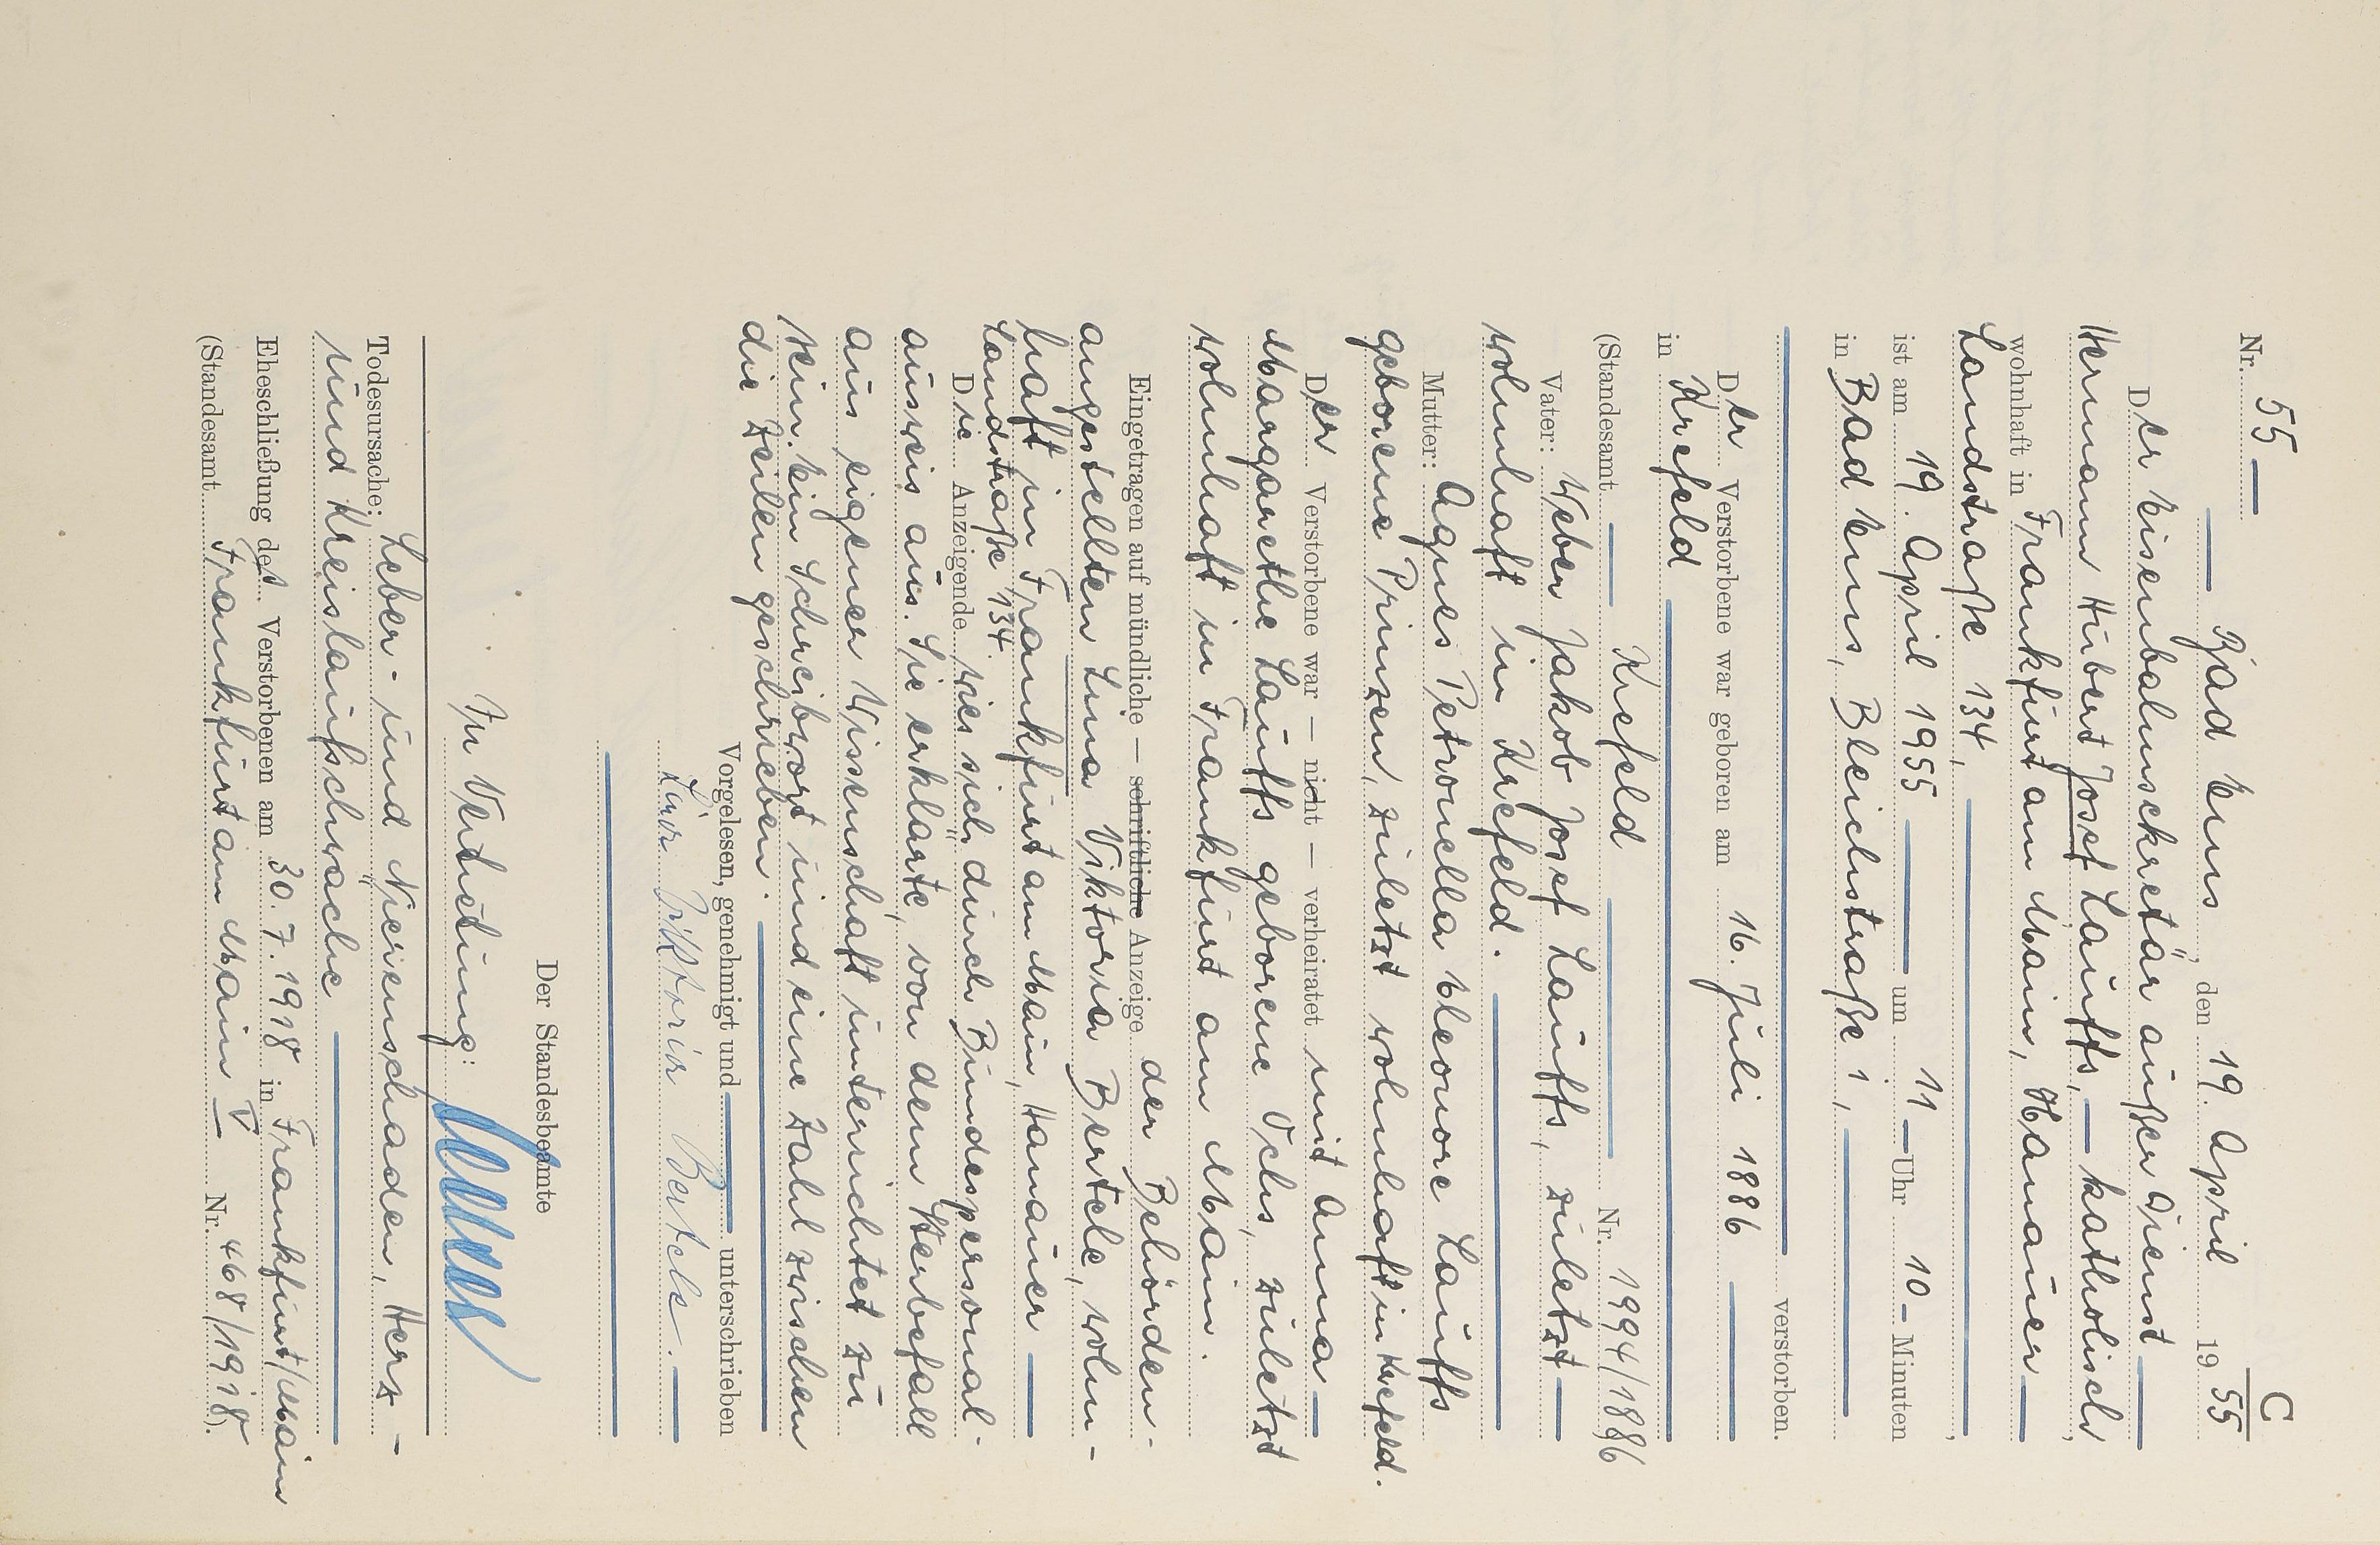 C
Nr. 55 —
— Bad Ems, den 19. April 1955
Der Eisenbahnsekretär außer Dienst —
Hermann Hubert Josef Lauffs, — katholisch,
wohnhaft in Frankfurt am Main, Hanauer —
Landstraße 134, —,
ist am 19. April 1955 — um 11 — Uhr 10 — Minuten
in Bad Ems, Bleichstraße 1, —
— verstorben.
Der Verstorbene war geboren am 16. Juli 1886 —
in Krefeld —
(Standesamt — Krefeld — Nr. 1994/1886)
Vater: Weber Jakob Josef Lauffs, zuletzt —
wohnhaft in Krefeld. —
Mutter: Agnes Petronella Eleonore Lauffs
geborene Prinzen, zuletzt wohnhaft in Krefeld.
Der Verstorbene war — nicht — verheiratet mit Anna —
Margarethe Lauffs geborene Ochs, zuletzt
wohnhaft in Frankfurt am Main.
Eingetragen auf mündliche — schriftliche Anzeige der Behörden-
angestellten Lina Viktoria Bertele, wohn-
haft in Frankfurt am Main, Hanauer —
Landstraße 134.
Die Anzeigende wies sich durch Bundespersonal-
ausweis aus. Sie erklärte, von dem Sterbefall
aus eigener Wissenschaft unterrichtet zu
sein. Ein Schreibwort und eine Zahl zwischen
die Zeilen geschrieben. —
Vorgelesen, genehmigt und — unterschrieben
Viktoria Bertele. —
—
Der Standesbeamte
In Vertretung:
Todesursache: Leber- und Nierenschaden, Herz-
und Kreislaufschwäche —
Eheschließung des Verstorbenen am 30.7.1918 in Frankfurt/Main
(Standesamt Frankfurt am Main V — Nr. 468/1918).